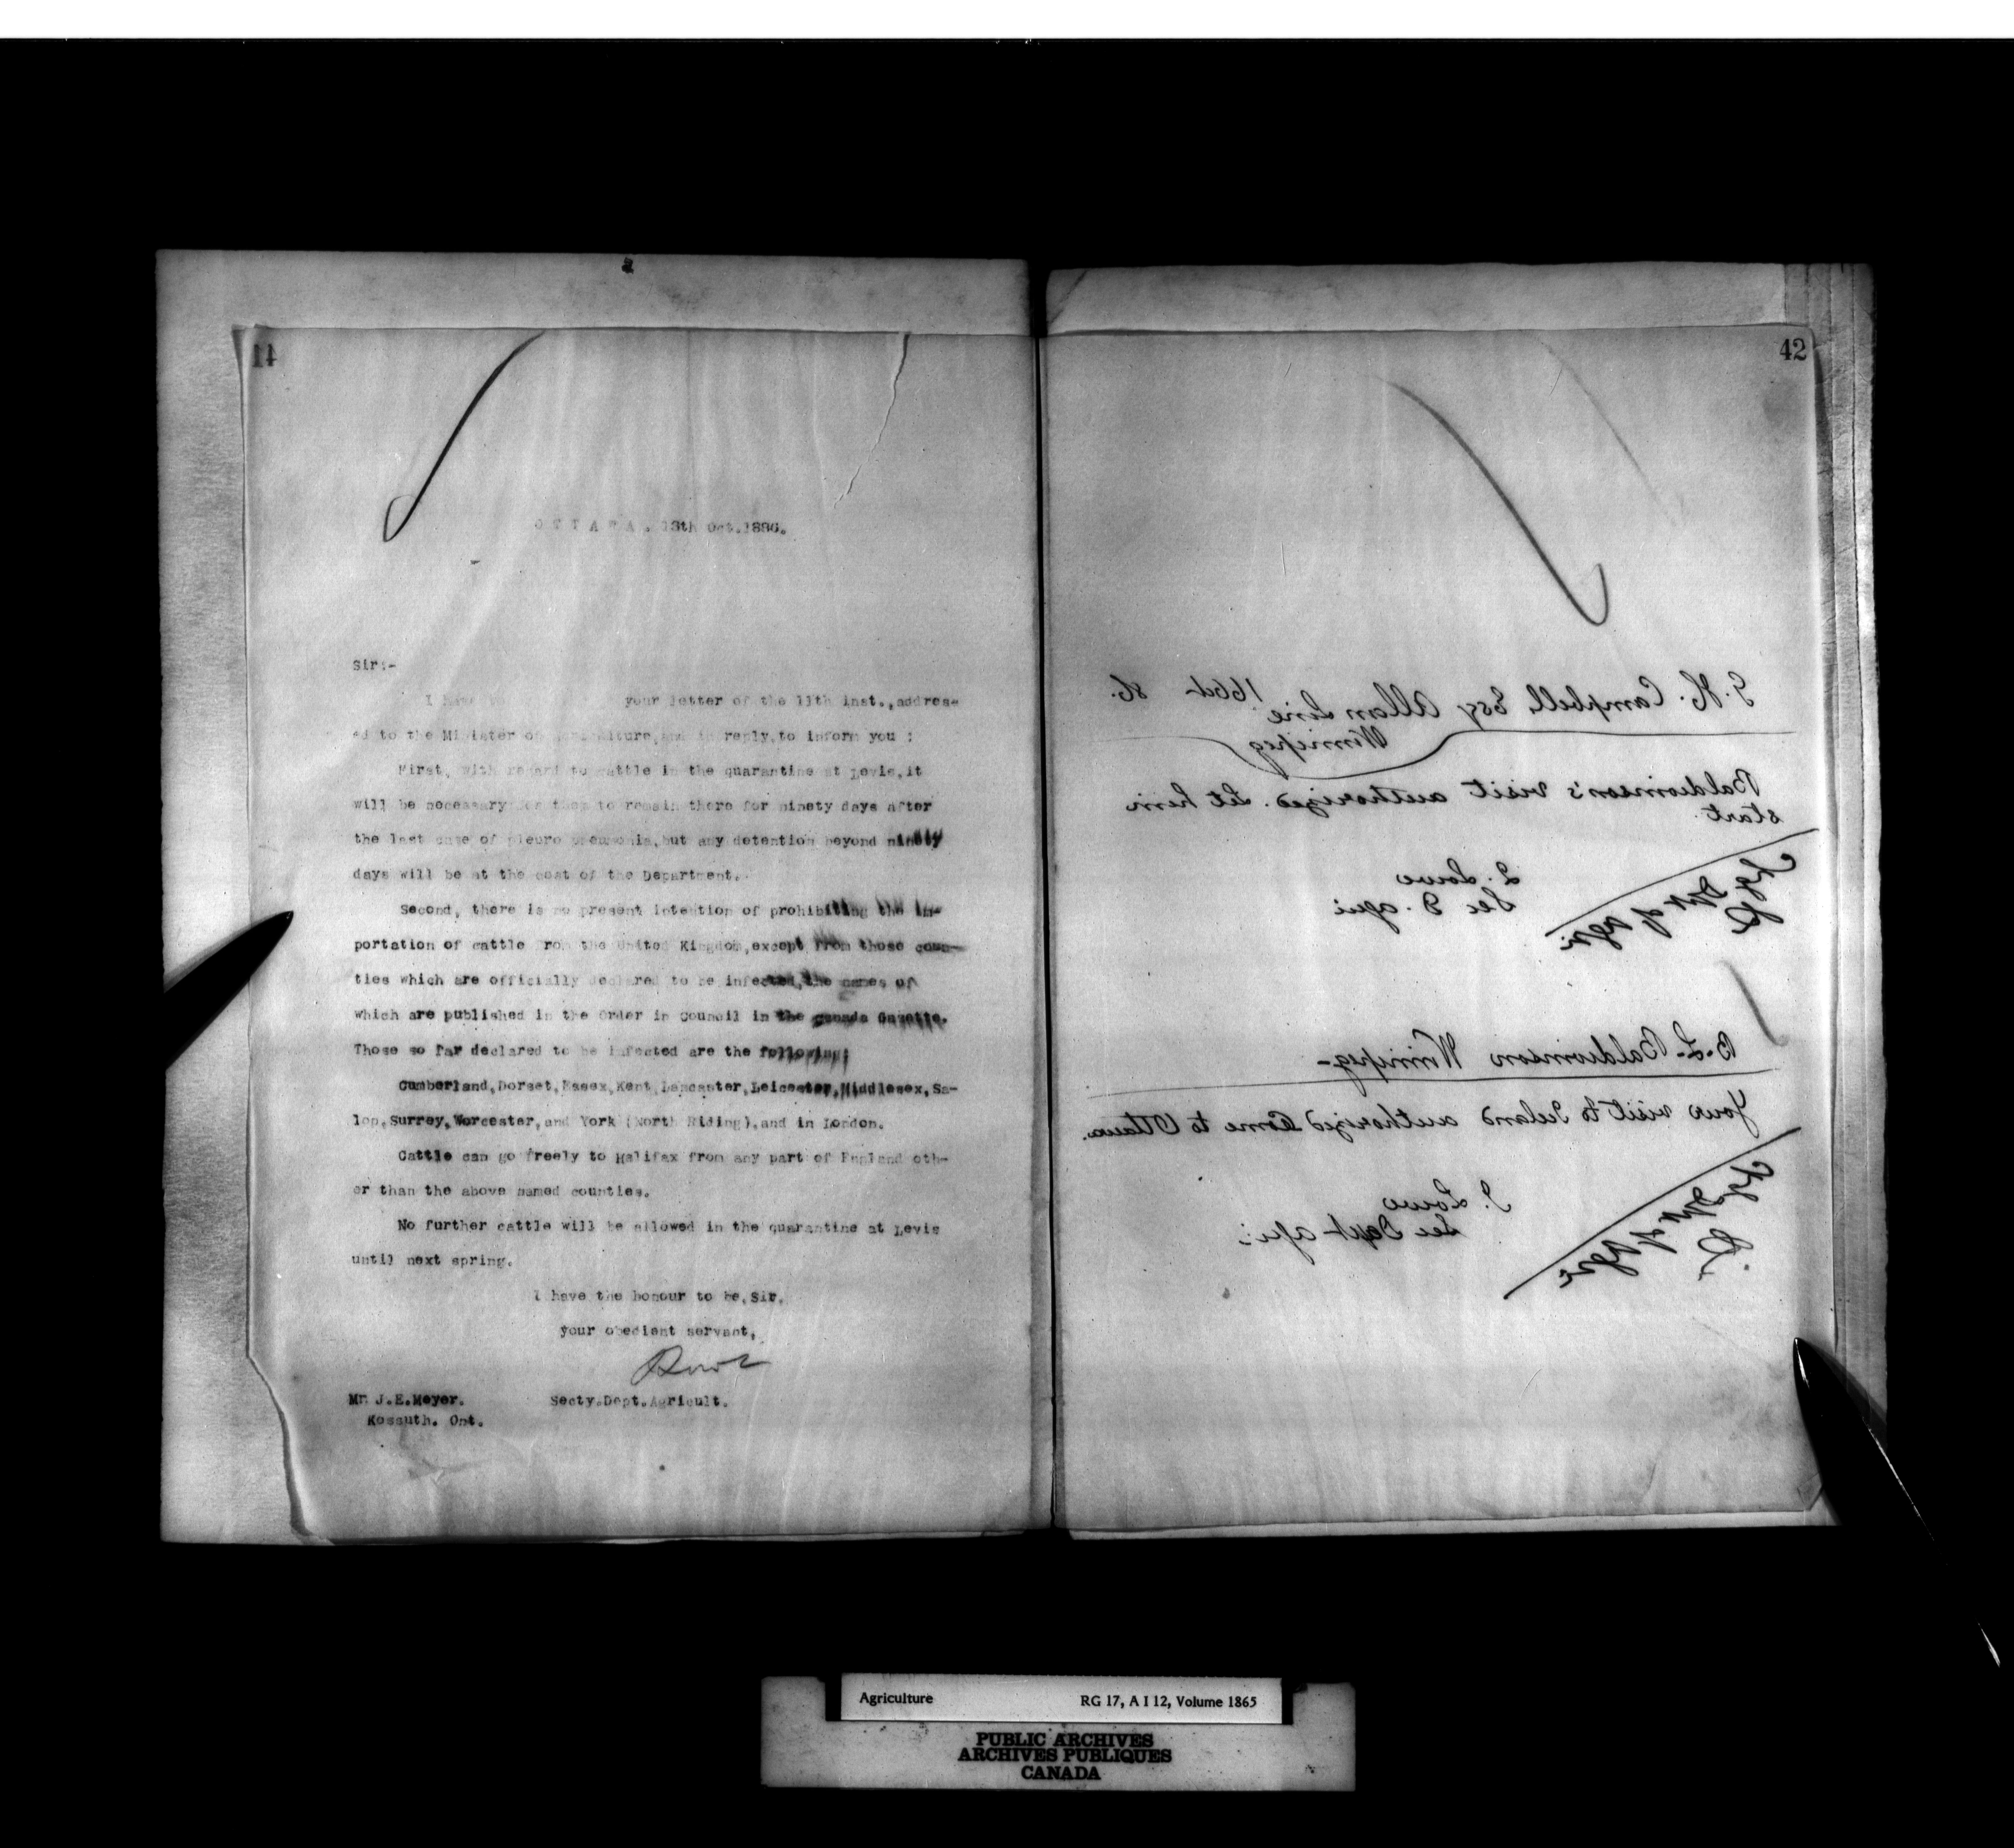 14
OTTAWA. 13th Oct. 1886.
Sir:-
I have your letter of the 11th inst., addres-
ed to the Minister of Agriculture, and in reply, to inform you :
First, with regard to cattle in the quarantine at Levis, it
will be necessary for them to remain there for ninety days after
the last case of pleuro pneumonia, but any detention beyond ninety
days will be at the cost of the Department.
Second, there is no present intention of prohibiting the im-
portation of cattle from the United Kingdom, except from those coun-
ties which are officially declared to be infected, the names of
which are published in the Order in Council in the Canada Gazette.
Those so far declared to be infected are the following:
Cumberland, Dorset, Essex, Kent, Lancaster, Leicester, Middlesex, Sa-
lop, Surrey, Worcester, and York (North Riding), and in London.
Cattle can go freely to Halifax from any part of England oth-
er than the above named counties.
No further cattle will be allowed in the quarantine at Levis
until next spring.
I have the honour to be, Sir,
your obedient servant,
Lowe
Secty. Dept. Agricult.
Mr J.E. Meyer.
Kossuth. Ont.
42
16 Oct 86.
J. H. Campbell Esq Allan Line
Winnipeg
Baldwinson's visit authorized. Let him
start.
J. Lowe
Sec D. Agri
Chg Dpt of Agri
B. L. Baldwinson Winnipeg -
Your visit to Iceland authorized Come to Ottawa.
J. Lowe
Sec Dept Agri
Chg Dpt of Agri
Agriculture RG 17, A I 12, Volume 1865
PUBLIC ARCHIVES
ARCHIVES PUBLIQUES
CANADA